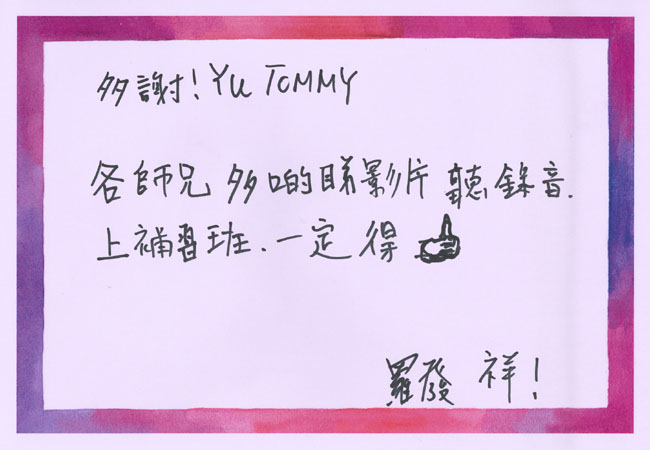 多謝! YU TOMMY
各師兄 多啲睇影片 聽錄音.
上補習班. 一定得
羅發 祥!